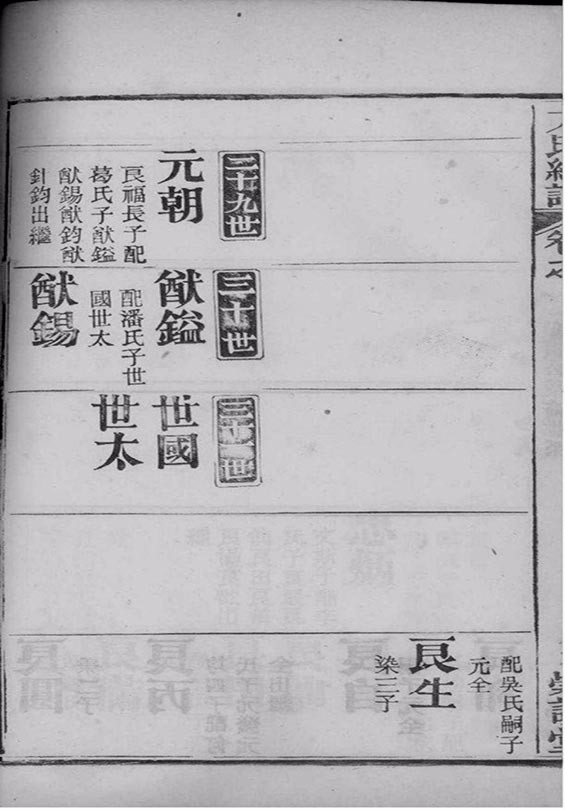 配吳氏嗣子
元全
良生
染三子
二十九世
元朝
良福長子配
葛氏子猷鎰
猷錫猷鈞猷
針鈞出繼
三十世
猷鎰
配潘氏子世
國世太
猷錫
三十一世
世國
世太